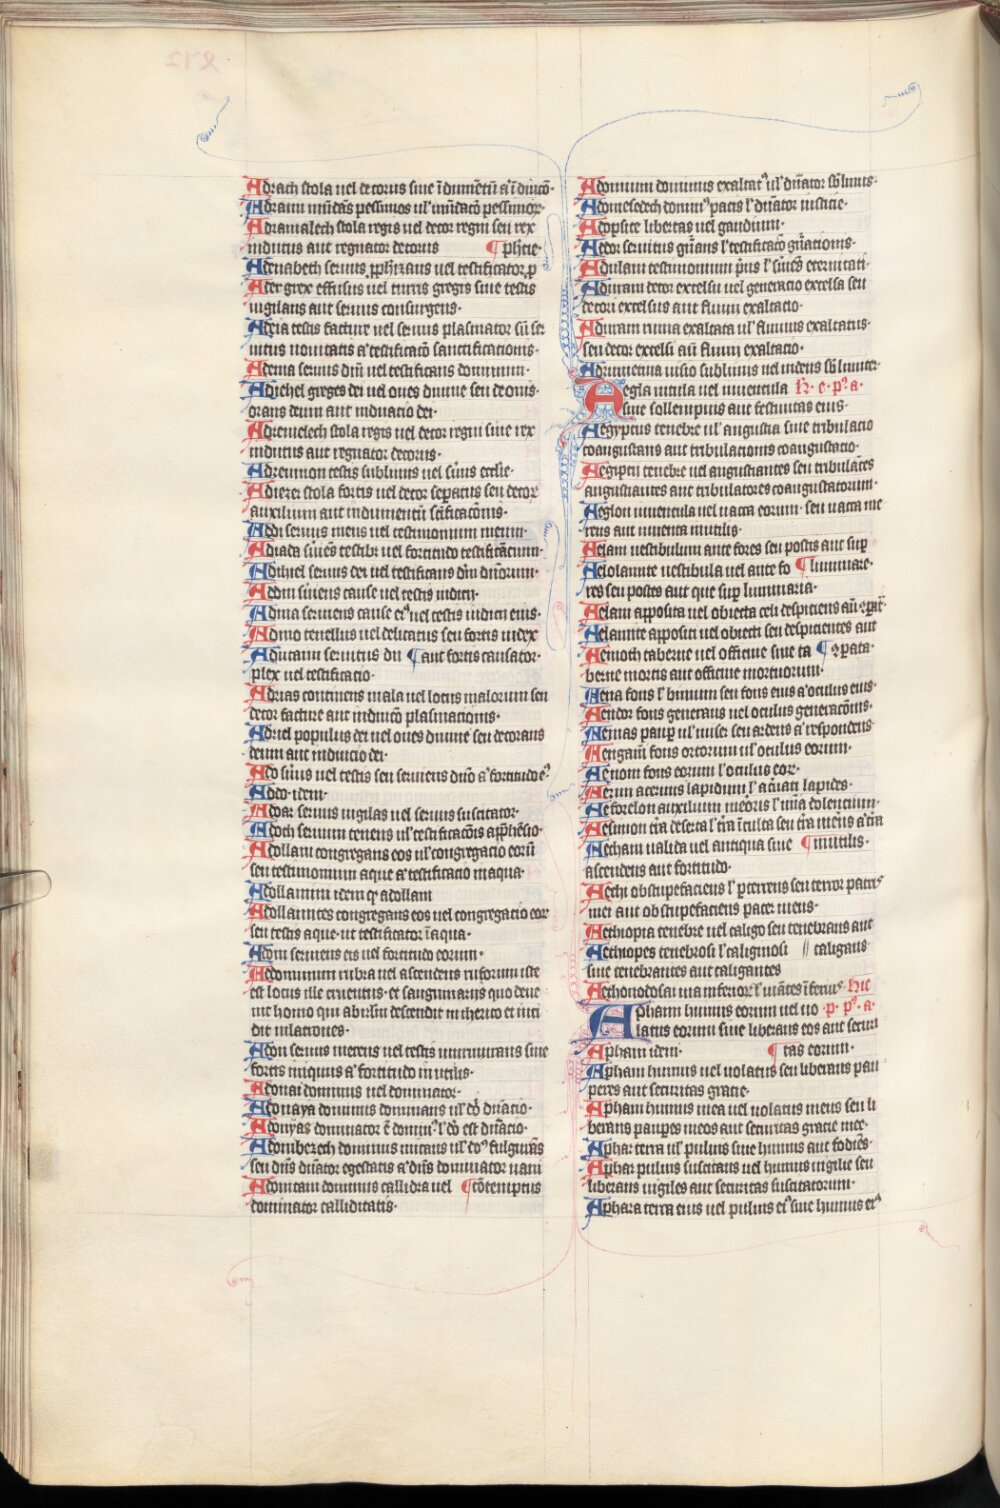 Adrach stola uel decorus siue īdumētū aut īdutꝰ·
Adram mūdās pessimos ul' mūdatō pessimoꝝ·
Adramalech stola regis uel decor regni seu rex
indutus aut regnator decorus ¶ phetie·
Adenabeth seruus ꝓphizans uel testificator ꝓ
Ader grex effusus uel turris gregis siue testis
uigilans aut seruus consurgens·
Adeia testis facture uel seruus plasmator siue ser
uiens nouitatis aut testificatō sanctificationis·
Adema seruus dn̄i uel testificans dominum·
Adiehel greges dei uel oues diuine seu decorās·
orans deum aut induicio dei·
Adremelech stola regis uel decor regni siue rex
indutus aut regnator decorus·
Adremmon testis sublimis uel
Adiezer stola fortis uel decor sepatus seu decor
auxilium aut indumentū
Addi seruus meus uel testimonium meum·
Adiada testibꝫ uel fortitudo
Adihiel seruus dei uel testificans dn̄m dn̄orum·
Adim cause uel testis iudicij·
Adina seruiens cause eiꝰ uel testis iudicij eius·
Adino tenellus uel delicatus seu fortis iudex
Aducam seruitus du ¶ aut fortis causator·
plex uel testificatio·
Adrias continens mala uel locus malorum seu
decor facture aut indutō plasmacionis·
Adriel populus dei uel oues diuine seu decorans
deum aut induicio dei·
Ado uel testis seu seruiens
Adco idem·
Adoar seruus uigilas uel seruus suscitator·
Adoch seruum tenens ul' testificacōis apphēsio·
Adollam congregans eos ul' congregacio eorū
seu testimonium aque aut testificatio in aqua·
Adollamim idem qꝫ adollam
Adollamites congregans eos uel congregacio eoꝝ
seu testis aque· ut testificator ī aqua·
Adom seruiens eis uel fortitudo eorum·
Adommim rubra uel ascendens ruforum iste
est locus ille cruentus· et sanguinarius quo deue
nit homo qui ab ierl'm descendit in iherico et inci
dit in latrones·
Adon seruus merens uel testis murmurans siue
fortis iniquus aut fortitudo inutilis·
Adonai dominus uel dominator·
Adonaya dominus dominans ul' dn̄atio·
Adonyas dominator ē dominꝰ l' est dn̄acio·
Adonibezech dominus mitans ul' fulgurās
seu dn̄s dn̄ator egestatis aut dn̄s dominator uani
Adonicam dominus callidra uel ¶ cōtemptus
dominator calliditatis·
Adomum dominus exaltatꝰ ul' dn̄ator sb̄limis·
Adonisedech dominꝰ pacis l' dn̄ator iusticie·
Adopsite libertas uel gaudium·
Adcor seruitus gn̄ans l' testificatō gn̄acionis·
Adulam testimonium l'
Aduram decor excelsu uel generacio excelsa seu
decori excelsus aut fluuij exaltacio·
Aduram ruina exaltata ul' fluuius exaltatus·
seu decor excelsi aut fluuij exaltacio·
Adrumetina uisio sublimis uel uidens sb̄limiter·
Aegla uitula uel iuuencula
siue sollempnis aut festiuitas eius·
Aegyptus tenebre ul' angustia siue tribulacio
coangustans aut tribulationis coangustatio·
Aegiptij tenebre uel angustiantes seu tribulātes
angustiantes aut tribulatores coangustatorum·
Aeglon iuuencula uel uacca eorum· seu uacca me
rens aut iuuenta inutilis·
Aelam uestibulum ante fores seu postis aut sup
Aelolamite uestibula uel ante fo ¶ liminare·
res seu postes aut que sup luminaria·
Aelam apposita uel obiecta celi despiciens
Aelamite appositi uel obiecti seu despicientes aut
Aemoth taberne uel officine siue ta
berne mortis aut officine mortuorum·
Aena fons l' bimum seu fons eius aut oculus eius·
Aendor fons generans uel oculus generacōnis·
Aeneas paup ul' miser seu ardens aut respondens
Aengam̄ fons ortorum ul' oculus eorum·
Aenom fons eorum l' oculus eoꝝ·
Aerim aceruus lapidum l' aceruati lapides·
Aeforelon auxilium meroris l' dolentium·
Aesimon deserta l' inculta seu
Aetham ualida uel antiqua siue ¶ inutilis·
ascendens aut fortitudo·
Aethi obstupefaciens l' pterrens seu terror patris
mei aut obstupefaciens pater meus·
Aethiopia tenebre uel caligo seu tenebrans aut
Aethiopes tenebrosi l' caliginosi // caligans
siue tenebrantes aut caligantes
Apham humus eorum uel uo
latus eorum siue liberans eos aut secur
Apham idem· ¶ tas eorum·
Apham humus uel uolatus seu liberans pau
peres aut securitas gracie·
Apham humus mea uel uolatus meus seu li
berans paupes meos aut securitas gracie mee·
Aphar terra ul' puluis siue humus aut fodiēs·
Aphar puluis suscitans uel humus uigilie seu
liberans uigiles aut securitas suscitatorum·
Aphara terra eius uel puluis eiꝰ siue humus eiꝰ